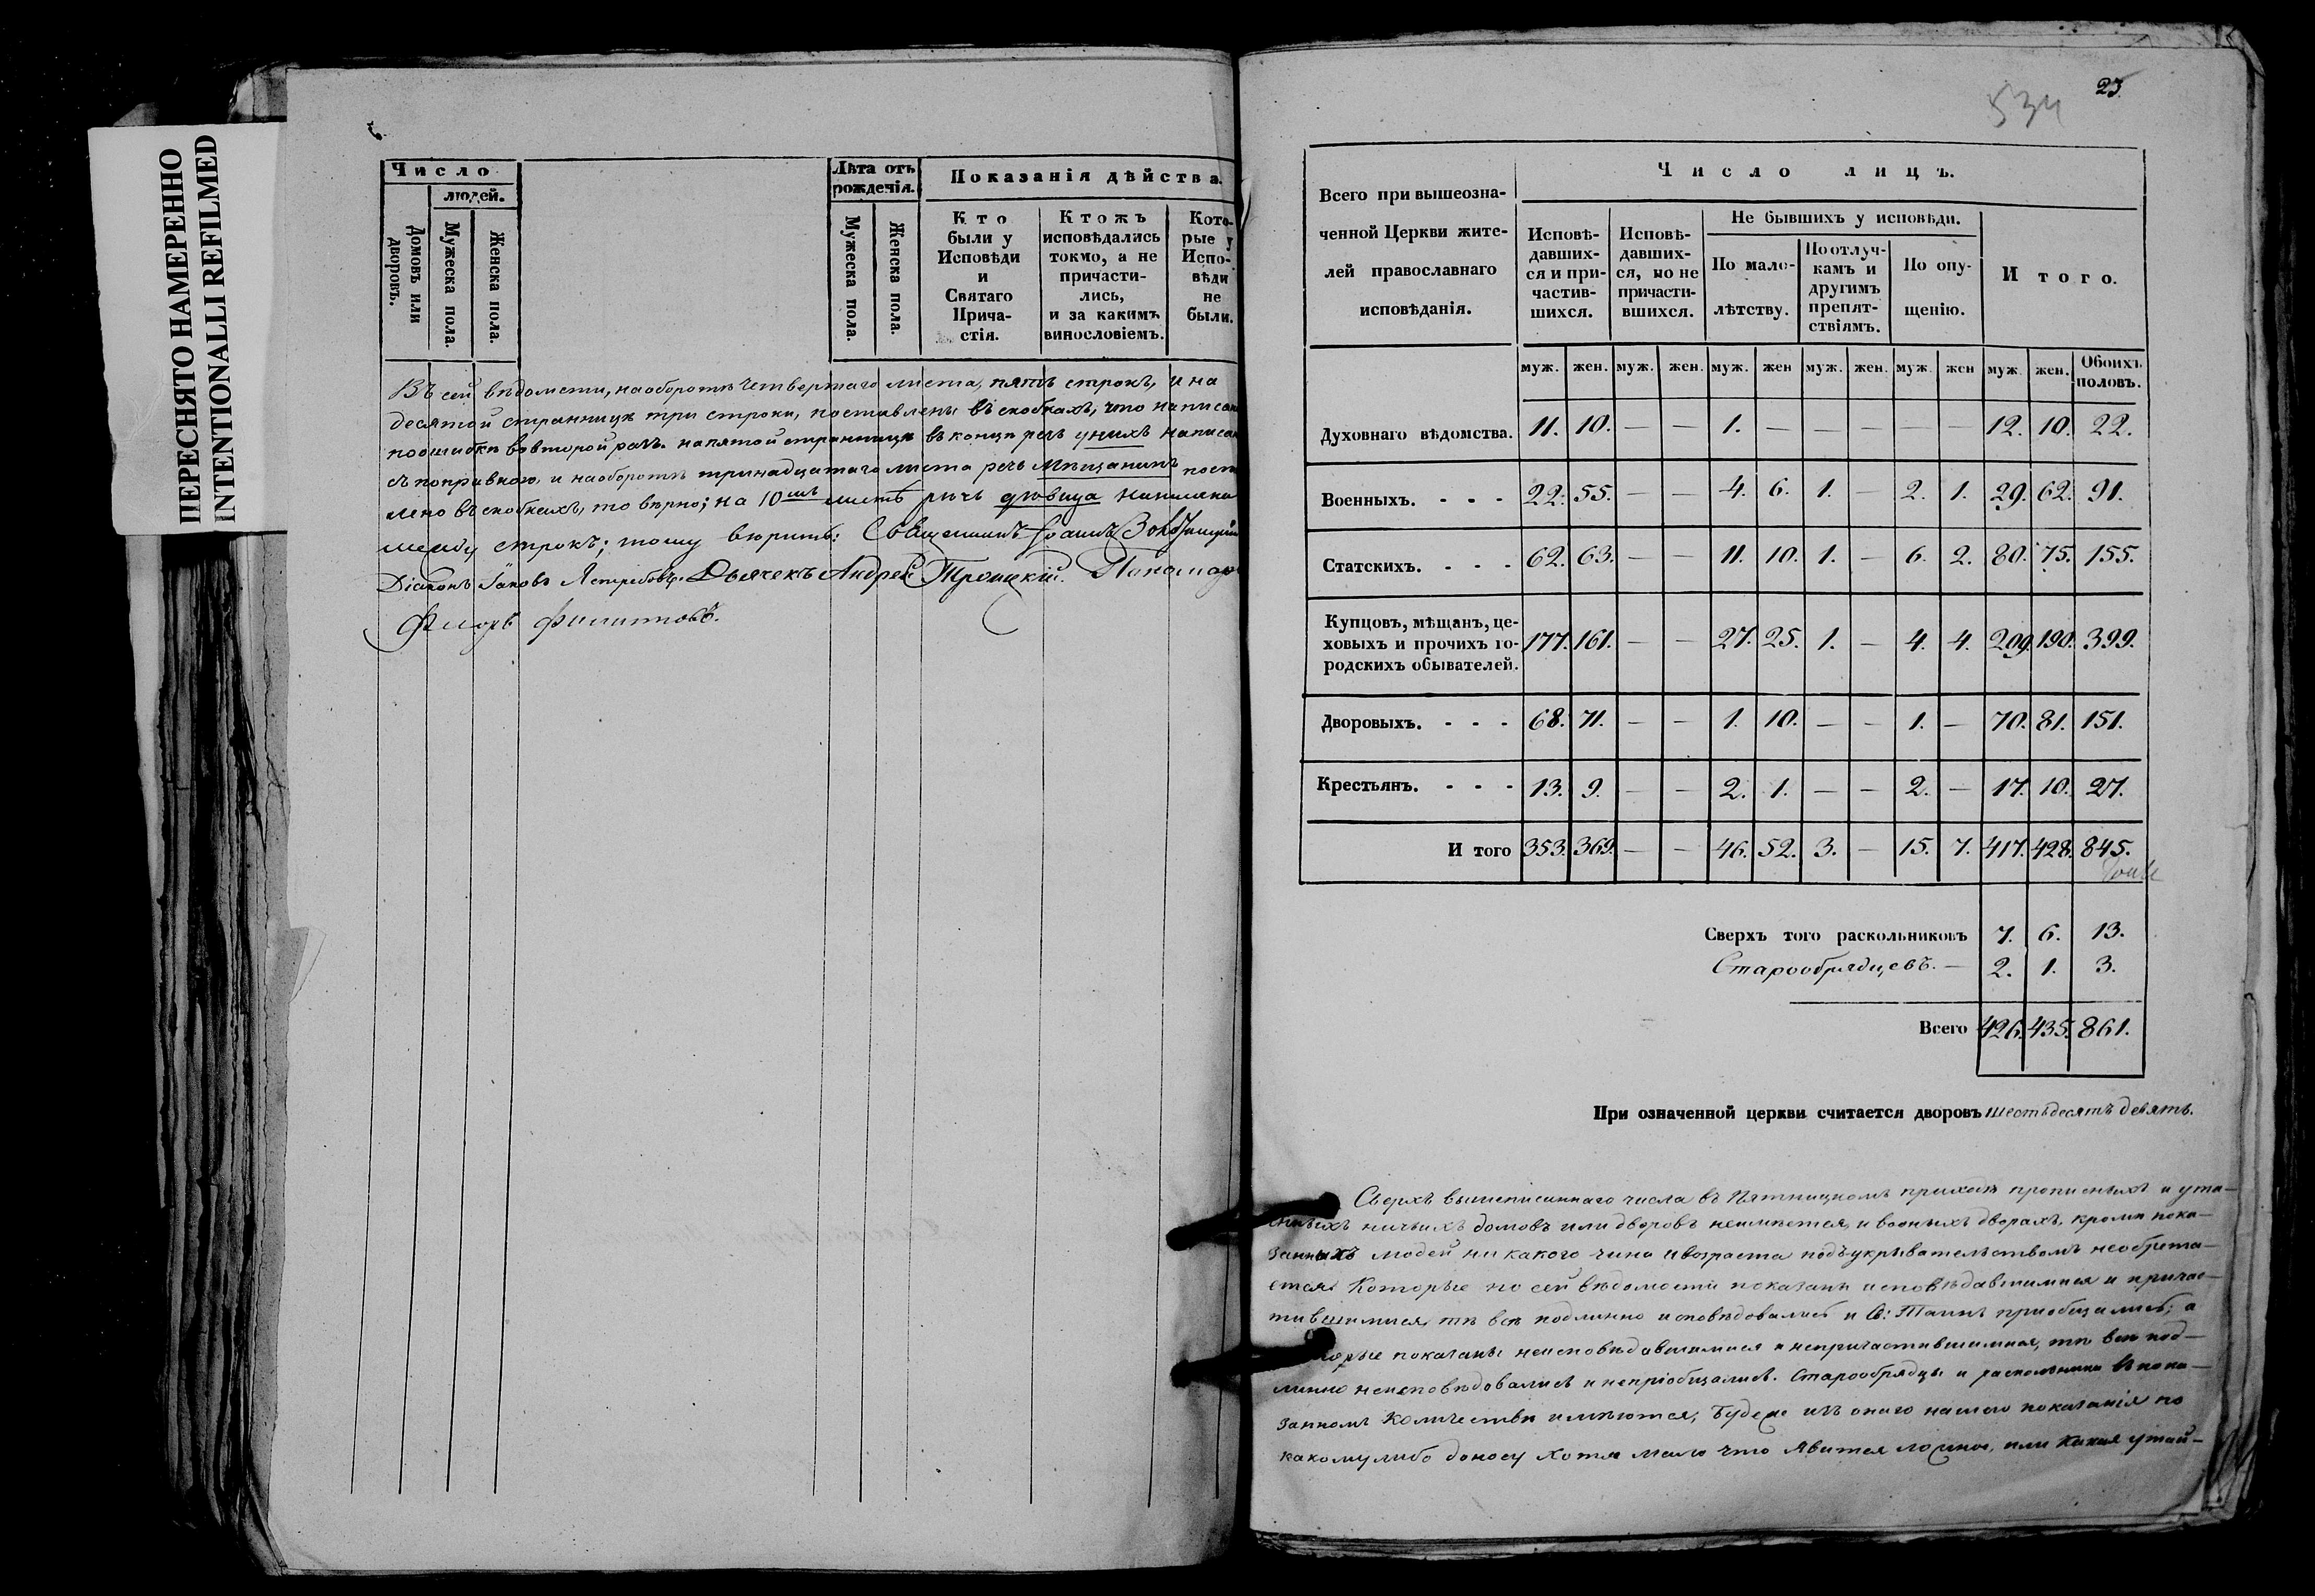 ПЕРЕСНЯТО НАМЕРЕННО
INTENTIONALLI REFILMED
Число
людей.
Домовъ или дворовъ.
Мужеска пола.
Женска пола.
Лѣта отъ рожденія.
Мужеска пола.
Женска пола.
Показанія дѣйства.
Кто были у Исповѣди и Святаго Прича-стія.
Ктожъ исповѣдались токмо, а не причасти-лись, и за какимъ винословіемъ.
Кото-рые у Испо-вѣди не были.
Въ сей вѣдомости, на оборотѣ четвертаго листа, пять строкъ, и на
десятой страницѣ три строки, поставлены въ скобкахъ, что написан
по ошибкѣ во второй разъ. на пятой страницѣ въ концѣ речь у нихъ написан
съ поправкою, и на оборотѣ тринадцатаго листа речь Мѣщанинъ постав
лено въ скобкахъ, то вѣрно; на 10мъ листѣ речь вдовица написана
между строкъ; тому вѣрить: Священникъ Іоаннъ
Діаконъ Іаковъ Ястребовъ. Дьячекъ Андрей Троицкій. Пономарь
Ѳлоръ Филипповъ.
534
23.
Всего при вышеозна-ченной Церкви жите-лей православнаго исповѣданія.
Число лицъ.
Исповѣ-давших-ся и при-частив-шихся.
Исповѣ-давших-ся, но не причасти-вшихся.
Не бывшихъ у исповѣди.
По мало-лѣтству.
По отлуч-камъ и другимъ препят-ствіямъ.
По опу-щенію.
Итого.
муж. жен. муж. жен. муж. жен муж. жен. муж. жен муж. жен. Обоихъ половъ.
Духовнаго вѣдомства. 11. 10. — — 1. — — — — — 12. 10. 22.
Военныхъ. - - - 22. 55. — — 4. 6. 1. — 2. 1. 29. 62. 91.
Статскихъ. - - - 62. 63. — — 11. 10. 1. — 6. 2. 80. 75. 155.
Купцовъ, мѣщанъ, це-ховыхъ и прочихъ го-родскихъ обывателей. 177. 161. — — 27. 25. 1. — 4. 4. 209. 190. 399.
Дворовыхъ. - - - 68. 71. — — 1. 10. — — 1. — 70. 81. 151.
Крестьянъ. - - - 13. 9. — — 2. 1. — — 2. — 17. 10. 27.
И того 353. 369. — — 46. 52. 3. — 15. 7. 417. 428. 845.
Сверхъ того раскольниковъ 7. 6. 13.
Старообрядцевъ. — 2. 1. 3.
Всего 426. 435. 861.
При означенной церкви считается дворовъ шестьдесятъ девять.
Сверхъ вышеписаннаго числа въ Пятницкомъ приходѣ прописныхъ и ута-
енныхъ ничьихъ домовъ или дворовъ неимѣется, и во оныхъ дворахъ, кромѣ пока-
занныхъ людей ни какого чина и возраста подъ укрывательствомъ необрета-
ется. Которые по сей вѣдомости показаны исповѣдавшимися и причас-
тившимися, тѣ всѣ подлинно исповѣдовались и Св: Таинъ приобщались; а
которые показаны неисповѣдавшимися и непричастившимися, тѣ всѣ под-
линно неисповѣдовались и непріобщались. Старообрядцы и раскольники въ пока-
занномъ количествѣ имѣются; Буде же изъ онаго нашего показанія по
какому либо доносу хотя мало что явится ложное, или какая утай-